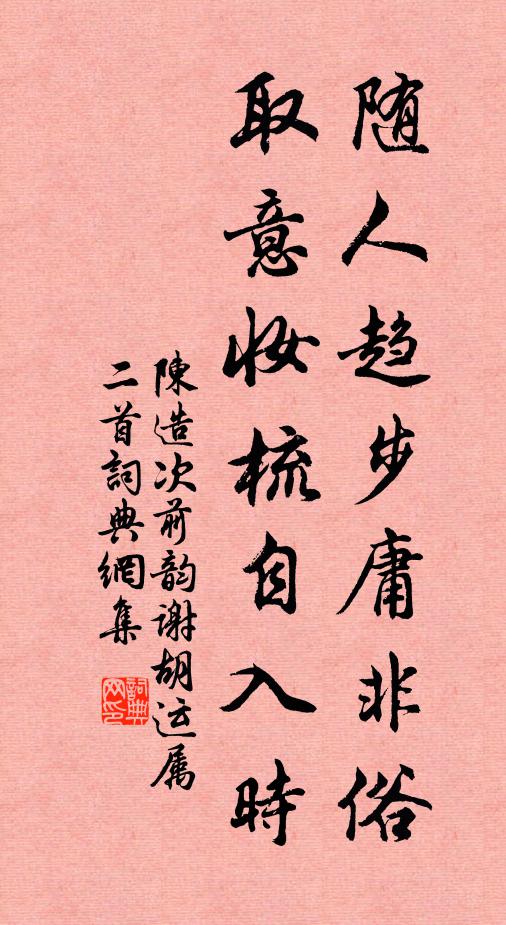 随人趋步庸非俗
取意妆梳自入時
陳造次前韵谢胡运属
二首詞典網集
詞典网印